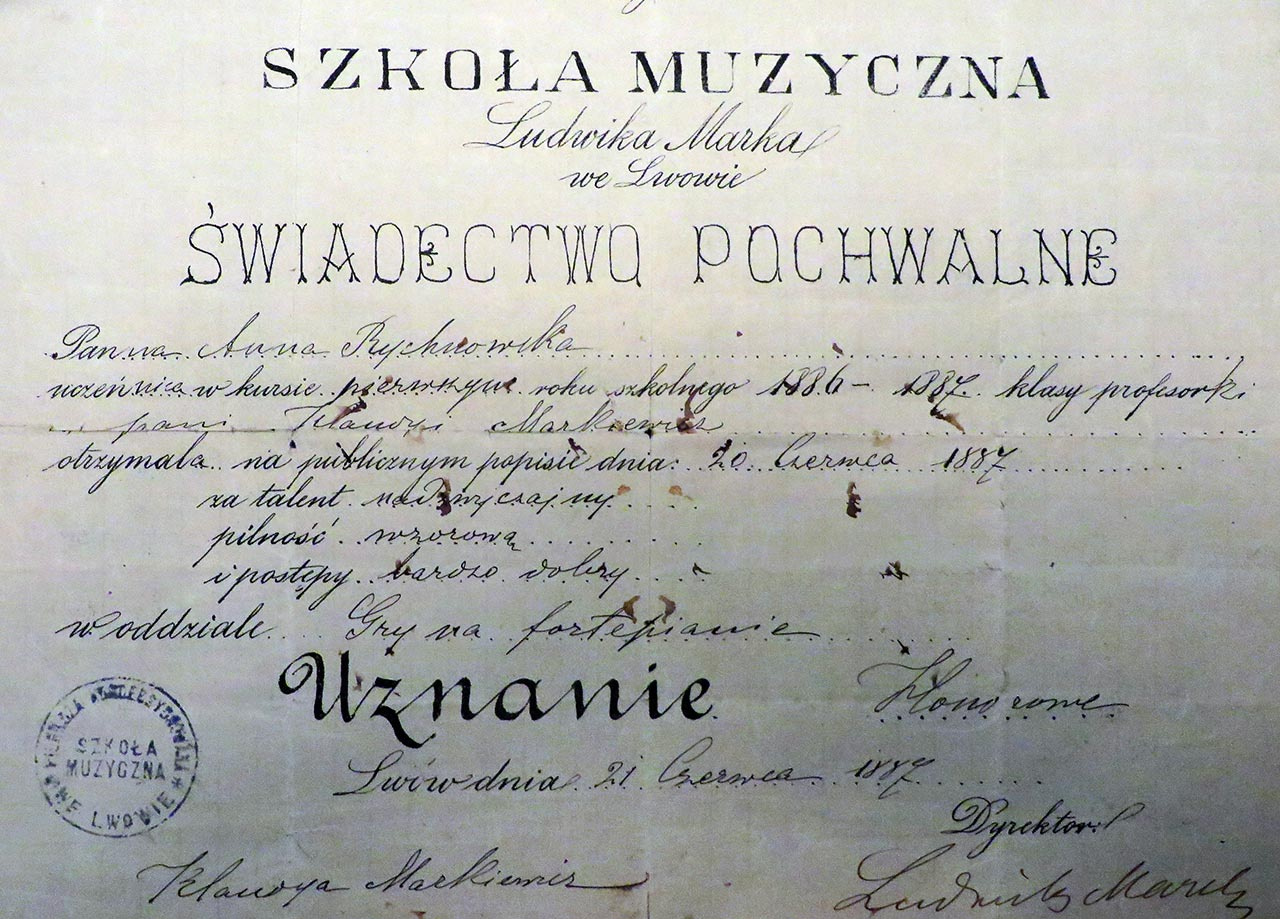 SZKOŁA MUZYCZNA
Ludwika Marka
we Lwowie
ŚWIADECTWO POCHWALNE
Panna Anna Rychnowska
uczennica w kursie pierwszym roku szkolnego 1886 – 1887. klasy profesorki
pani Klaudyi Markiewicz
otrzymała na publicznym popisie dnia: 20 Czerwca 1887
za talent nadzwyczajny
pilność wzorową
i postępy bardzo dobry
w oddziale Gry na fortepianie
Uznanie Honorowe
Lwów dnia 21 Czerwca 1887
SZKOŁA
MUZYCZNA
WE LWOWIE
Dyrektor:
Klaudya Markiewicz
Ludwik Marek